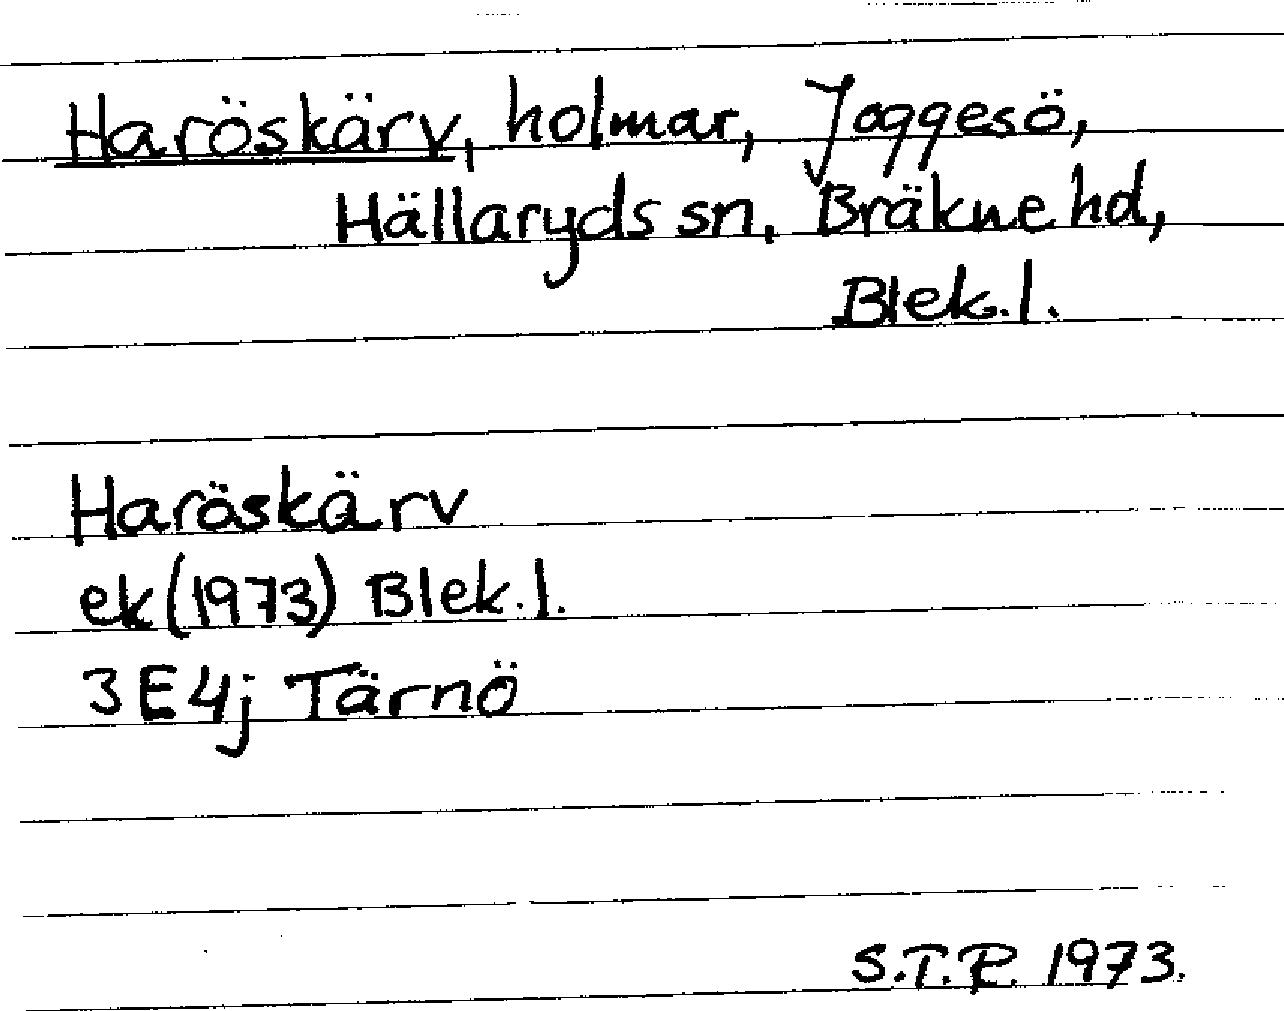 Haröskärv, holmar, Joggesö,
Hällaryds sn, Bräkne hd,
Blek. l.
Haröskärv
ek (1973) Blek. l.
3E4j Tärnö
S.T.R. 1973.